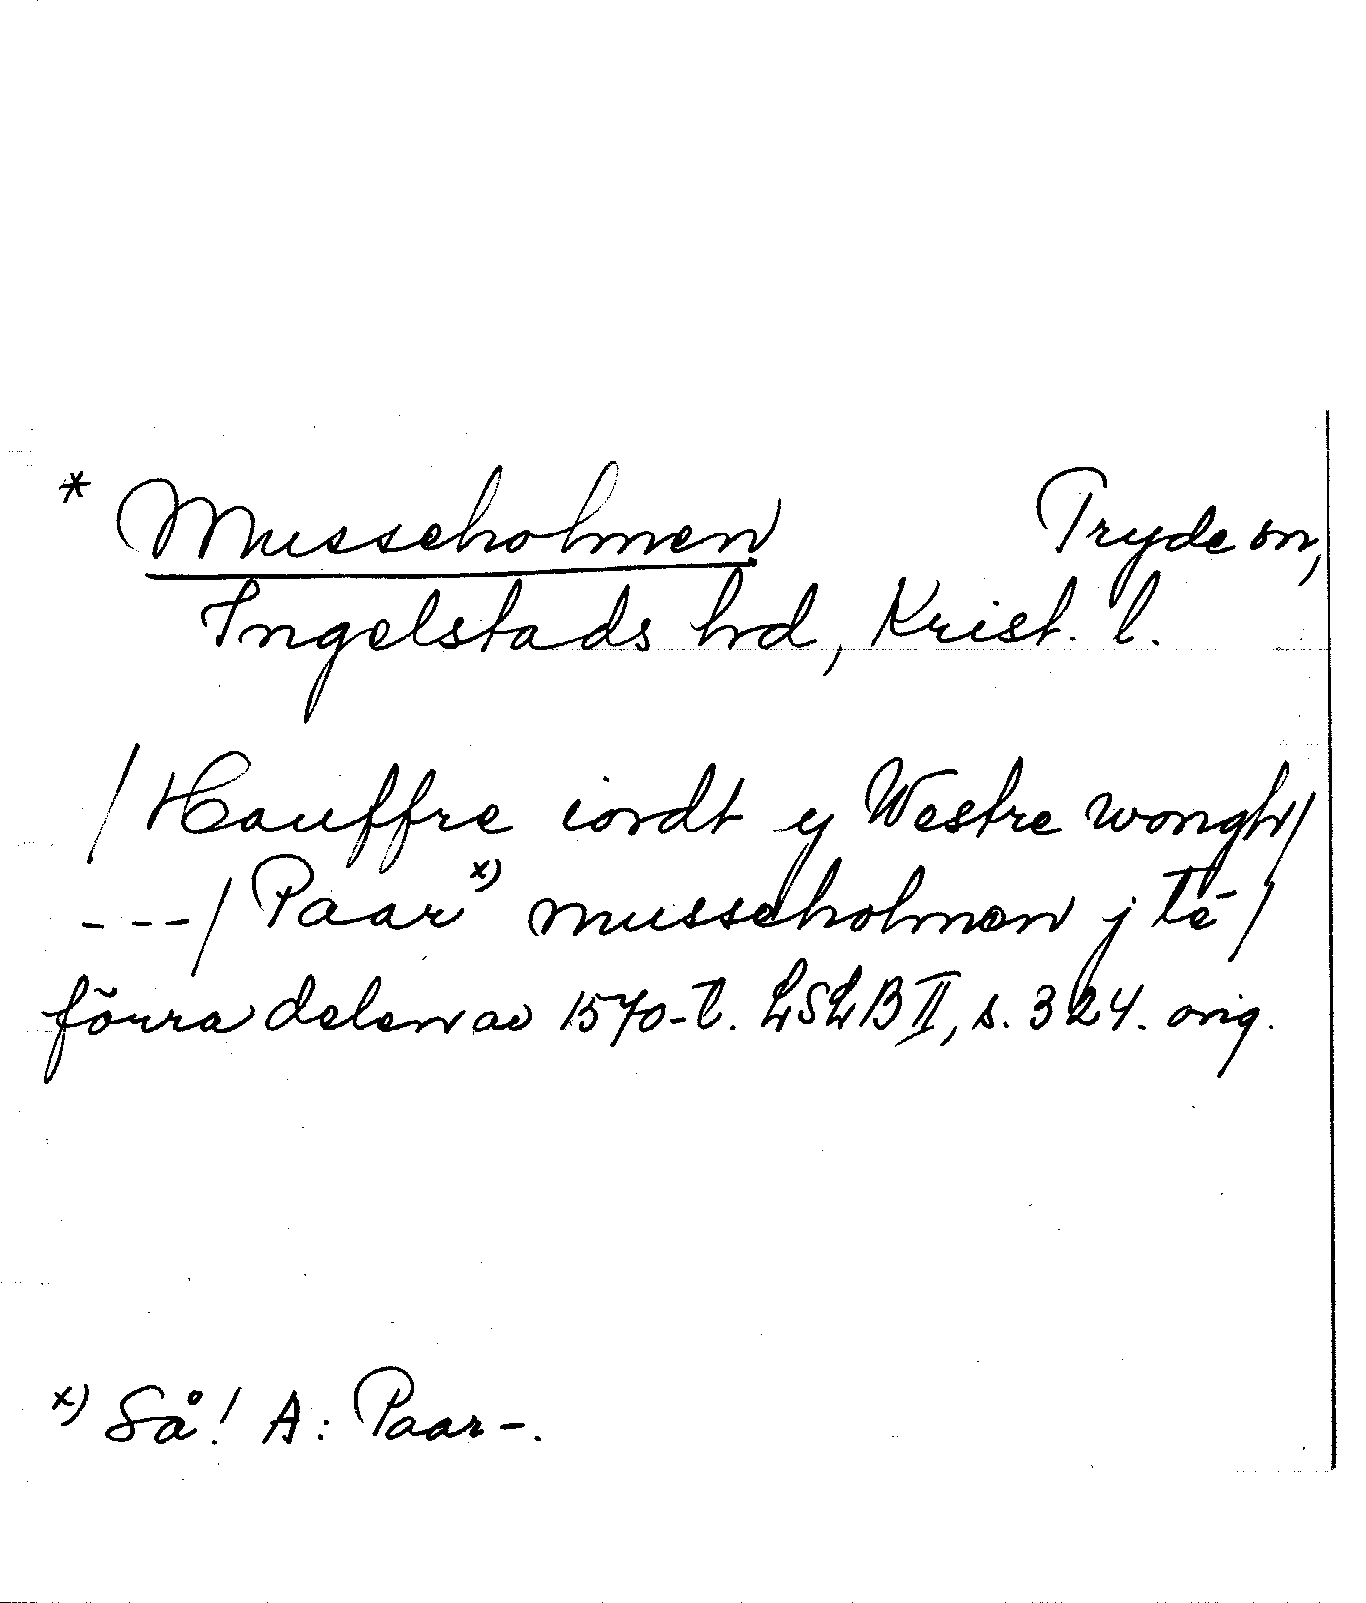 * Musseholmen Tryde sn,
Ingelstads hrd, Krist. l.
/ Hauffre iordt y Westre wongh/
---/ Paar x) musseholmen j tē /
förra delen av 1570-t. LSLB II, s. 324. orig.
x) Så! A: Paar-.